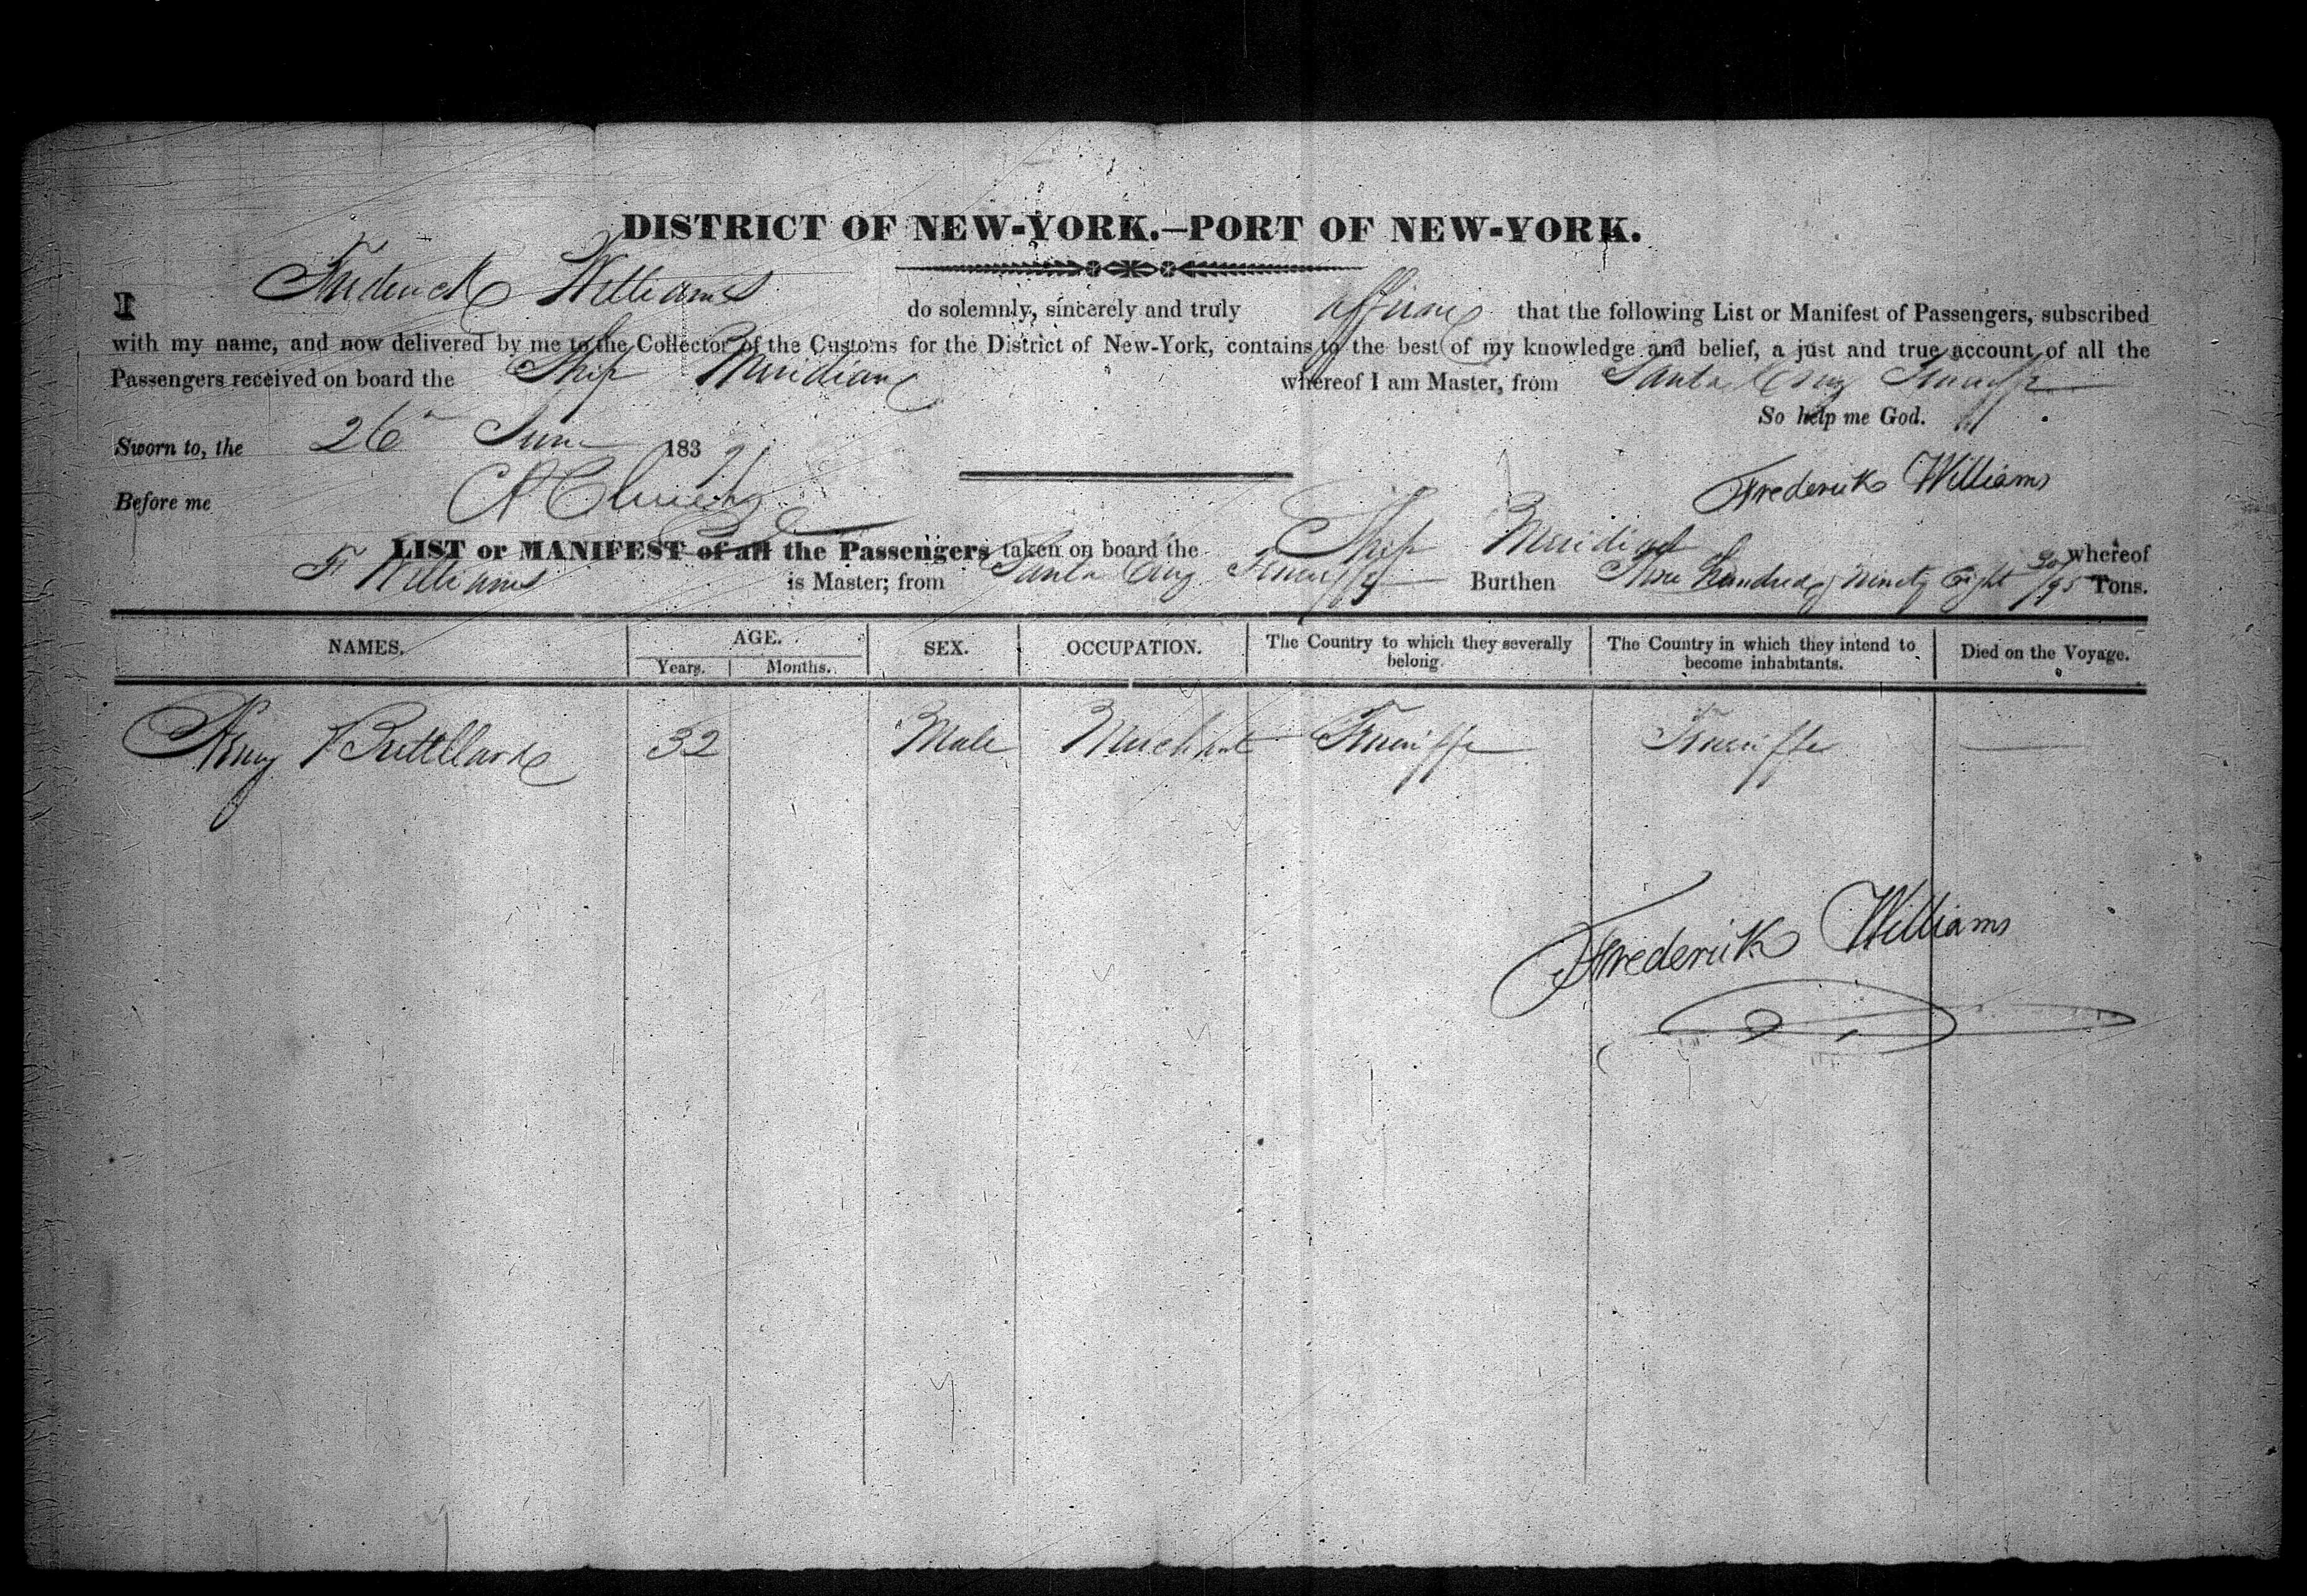 DISTRICT OF NEW-YORK.—PORT OF NEW-YORK.
I Frederick Williams do solemnly, sincerely and truly affirm that the following List or Manifest of Passengers, subscribed
with my name, and now delivered by me to the Collector of the Customs for the District of New-York, contains to the best of my knowledge and belief, a just and true account of all the
Passengers received on board the Ship Meridian whereof I am Master, from Santa Cruz Teneriffe
So help me God.
Sworn to, the 26 June 183
Frederick Williams
Before me
LIST or MANIFEST of all the Passengers taken on board the Ship Meridian whereof
F Williams is Master; from Santa Cruz Teneriffe Burthen Three hundred & Ninety Eight 30/95 Tons.
NAMES. AGE. SEX. OCCUPATION. The Country to which they severally belong. The Country in which they intend to become inhabitants. Died on the Voyage.
Years. Months.
Henry 32 Male Merchant Teneriffe Teneriffe
Frederick Williams